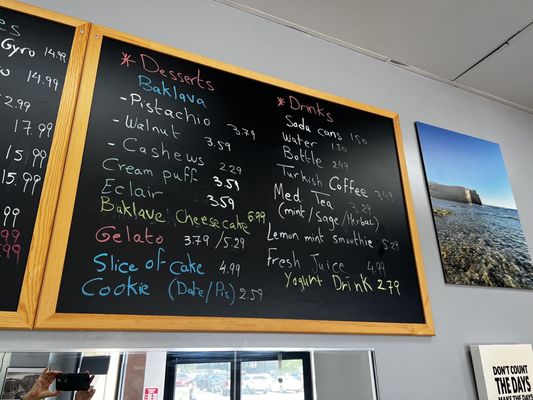 es
Gyro 14.99
o 14.99
2.99
17.99
15.99
15.99
.99
.99
.99
* Desserts
Baklava
- Pistachio 3.79
- Walnut 3.59
- Cashews 2.29
Cream puff 3.59
Eclair 3.59
Baklave Cheesecake 6.99
Gelato 3.79/5.29
Slice of Cake 4.99
Cookie (Date/Pis) 2.59
* Drinks
Soda cans 1.50
Water 1.50
Bottle 2.49
Turkish Coffee 3.49
Med Tea 3.29
(mint/sage/Herbal)
Lemon mint smoothie 5.29
Fresh Juice 4.99
Yogurt Drink 2.79
DON'T COUNT
THE DAYS
MAKE THE DAYS